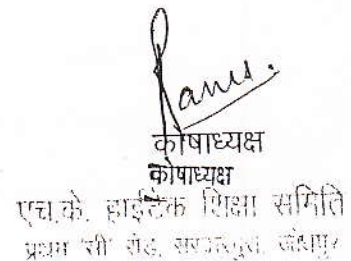 कोषाध्यक्ष
कोषाध्यक्ष
एच.के. हाईटेक शिक्षा समिति
प्रथम 'सी' रोड, सरदारपुरा, जोधपुर